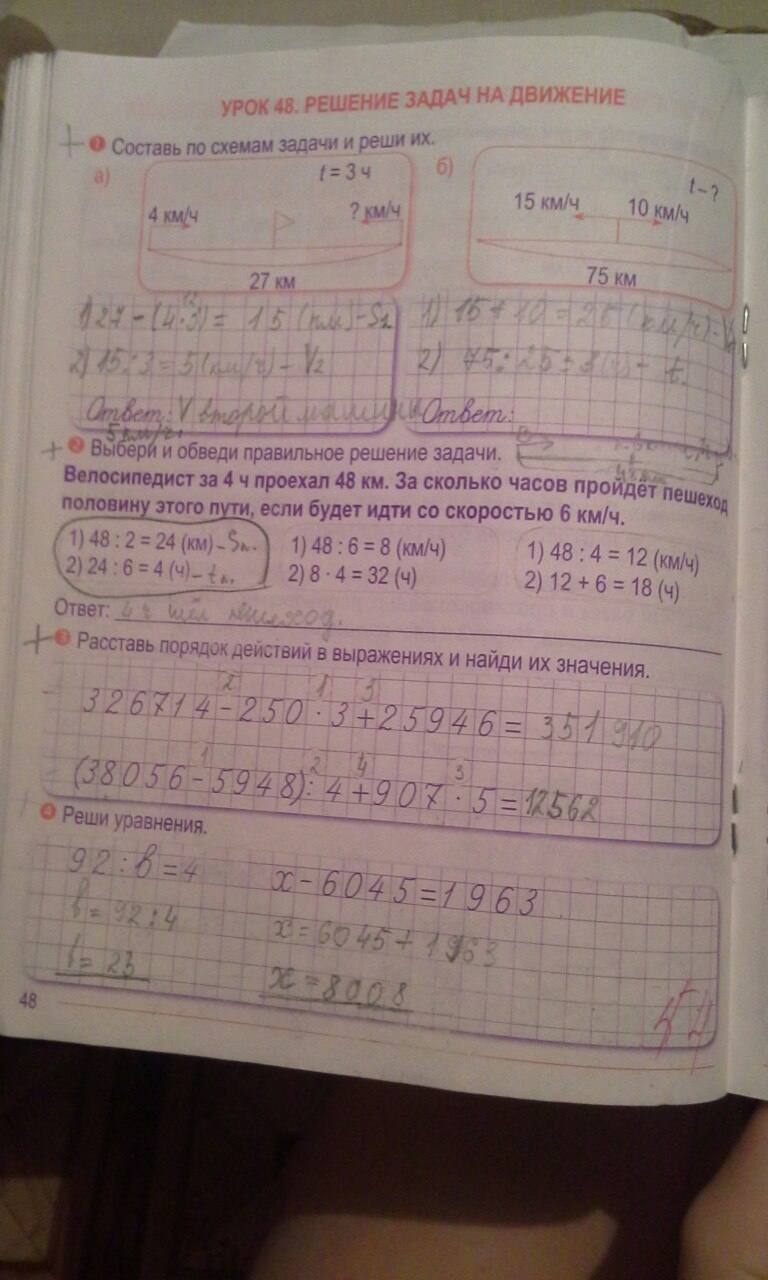 УРОК 48. РЕШЕНИЕ ЗАДАЧ НА ДВИЖЕНИЕ
+ 1 Составь по схемам задачи и реши их.
а) t = 3 ч
4 км/ч ? км/ч
27 км
б) t – ?
15 км/ч 10 км/ч
75 км
12
1) 27 - (4·3) = 15 (км) - S2
2) 15:3 = 5 (км/ч) - V2
Ответ: V второй машины
5 км/ч.
1) 15 + 10 = 25 (км/ч) - V
2) 75 : 25 = 3 (ч) - t.
Ответ:
+ 2 Выбери и обведи правильное решение задачи.
Велосипедист за 4 ч проехал 48 км. За сколько часов пройдёт пешеход
половину этого пути, если будет идти со скоростью 6 км/ч.
1) 48 : 2 = 24 (км) - Sп.
2) 24 : 6 = 4 (ч) - tп.
1) 48 : 6 = 8 (км/ч)
2) 8 · 4 = 32 (ч)
1) 48 : 4 = 12 (км/ч)
2) 12 + 6 = 18 (ч)
Ответ: 4 ч шёл пешеход.
+ 3 Расставь порядок действий в выражениях и найди их значения.
2 1 3
326714 - 250 · 3 + 25946 = 351910
1 2 4 3
(38056 - 5948) : 4 + 907 · 5 = 12562
4 Реши уравнения.
92 : в = 4
в = 92 : 4
в = 23
x - 6045 = 1963
x = 6045 + 1963
x = 8008
48